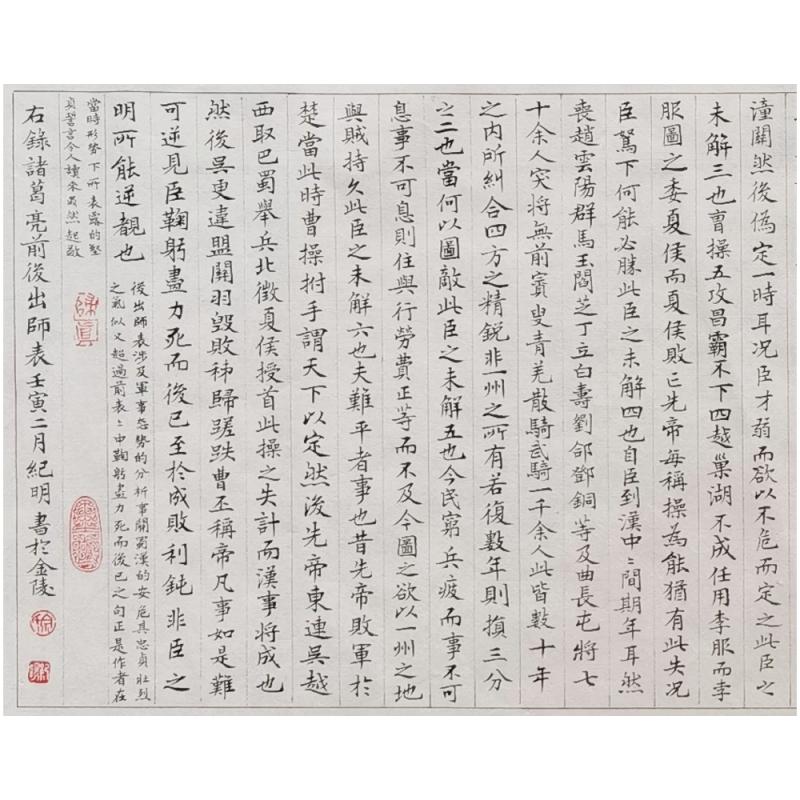 潼關然後偽定一時耳况臣才弱而欲以不危而定之此臣之
未解三也曹操五攻昌霸不下四越巢湖不成任用李服而李
服圖之委夏侯而夏侯敗亡先帝每稱操為能猶有此失况
臣駑下何能必勝此臣之未解四也自臣到漢中〻間期年耳然
喪趙雲陽群馬玉閻芝丁立白壽劉郃鄧銅等及曲長屯將七
十余人突將無前賓叟青羌散騎武騎一千余人此皆數十年
之内所糾合四方之精銳非一州之所有若復數年則損三分
之二也當何以圖敵此臣之未解五也今民窮兵疲而事不可
息事不可息則住與行勞費正等而不及今圖之欲以一州之地
與賊持久此臣之未解六也夫難平者事也昔先帝敗軍於
楚當此時曹操拊手謂天下以定然後先帝東連吳越
西取巴蜀舉兵北徵夏侯授首此操之失計而漢事將成也
然後吳更違盟關羽毀敗秭歸蹉跌曹丕稱帝凡事如是難
可逆見臣鞠躬盡力死而後已至於成敗利鈍非臣之
明所能逆覩也
後出師表涉及軍事态勢的分析事關蜀漢的安危其忠貞壯烈
之氣似又超過前表〻中鞠躬盡力死而後已之句正是作者在
當時形勢下所表露的堅
貞誓言令人讀來肅然起敬
右錄諸葛亮前後出師表壬寅二月紀明書於金陵